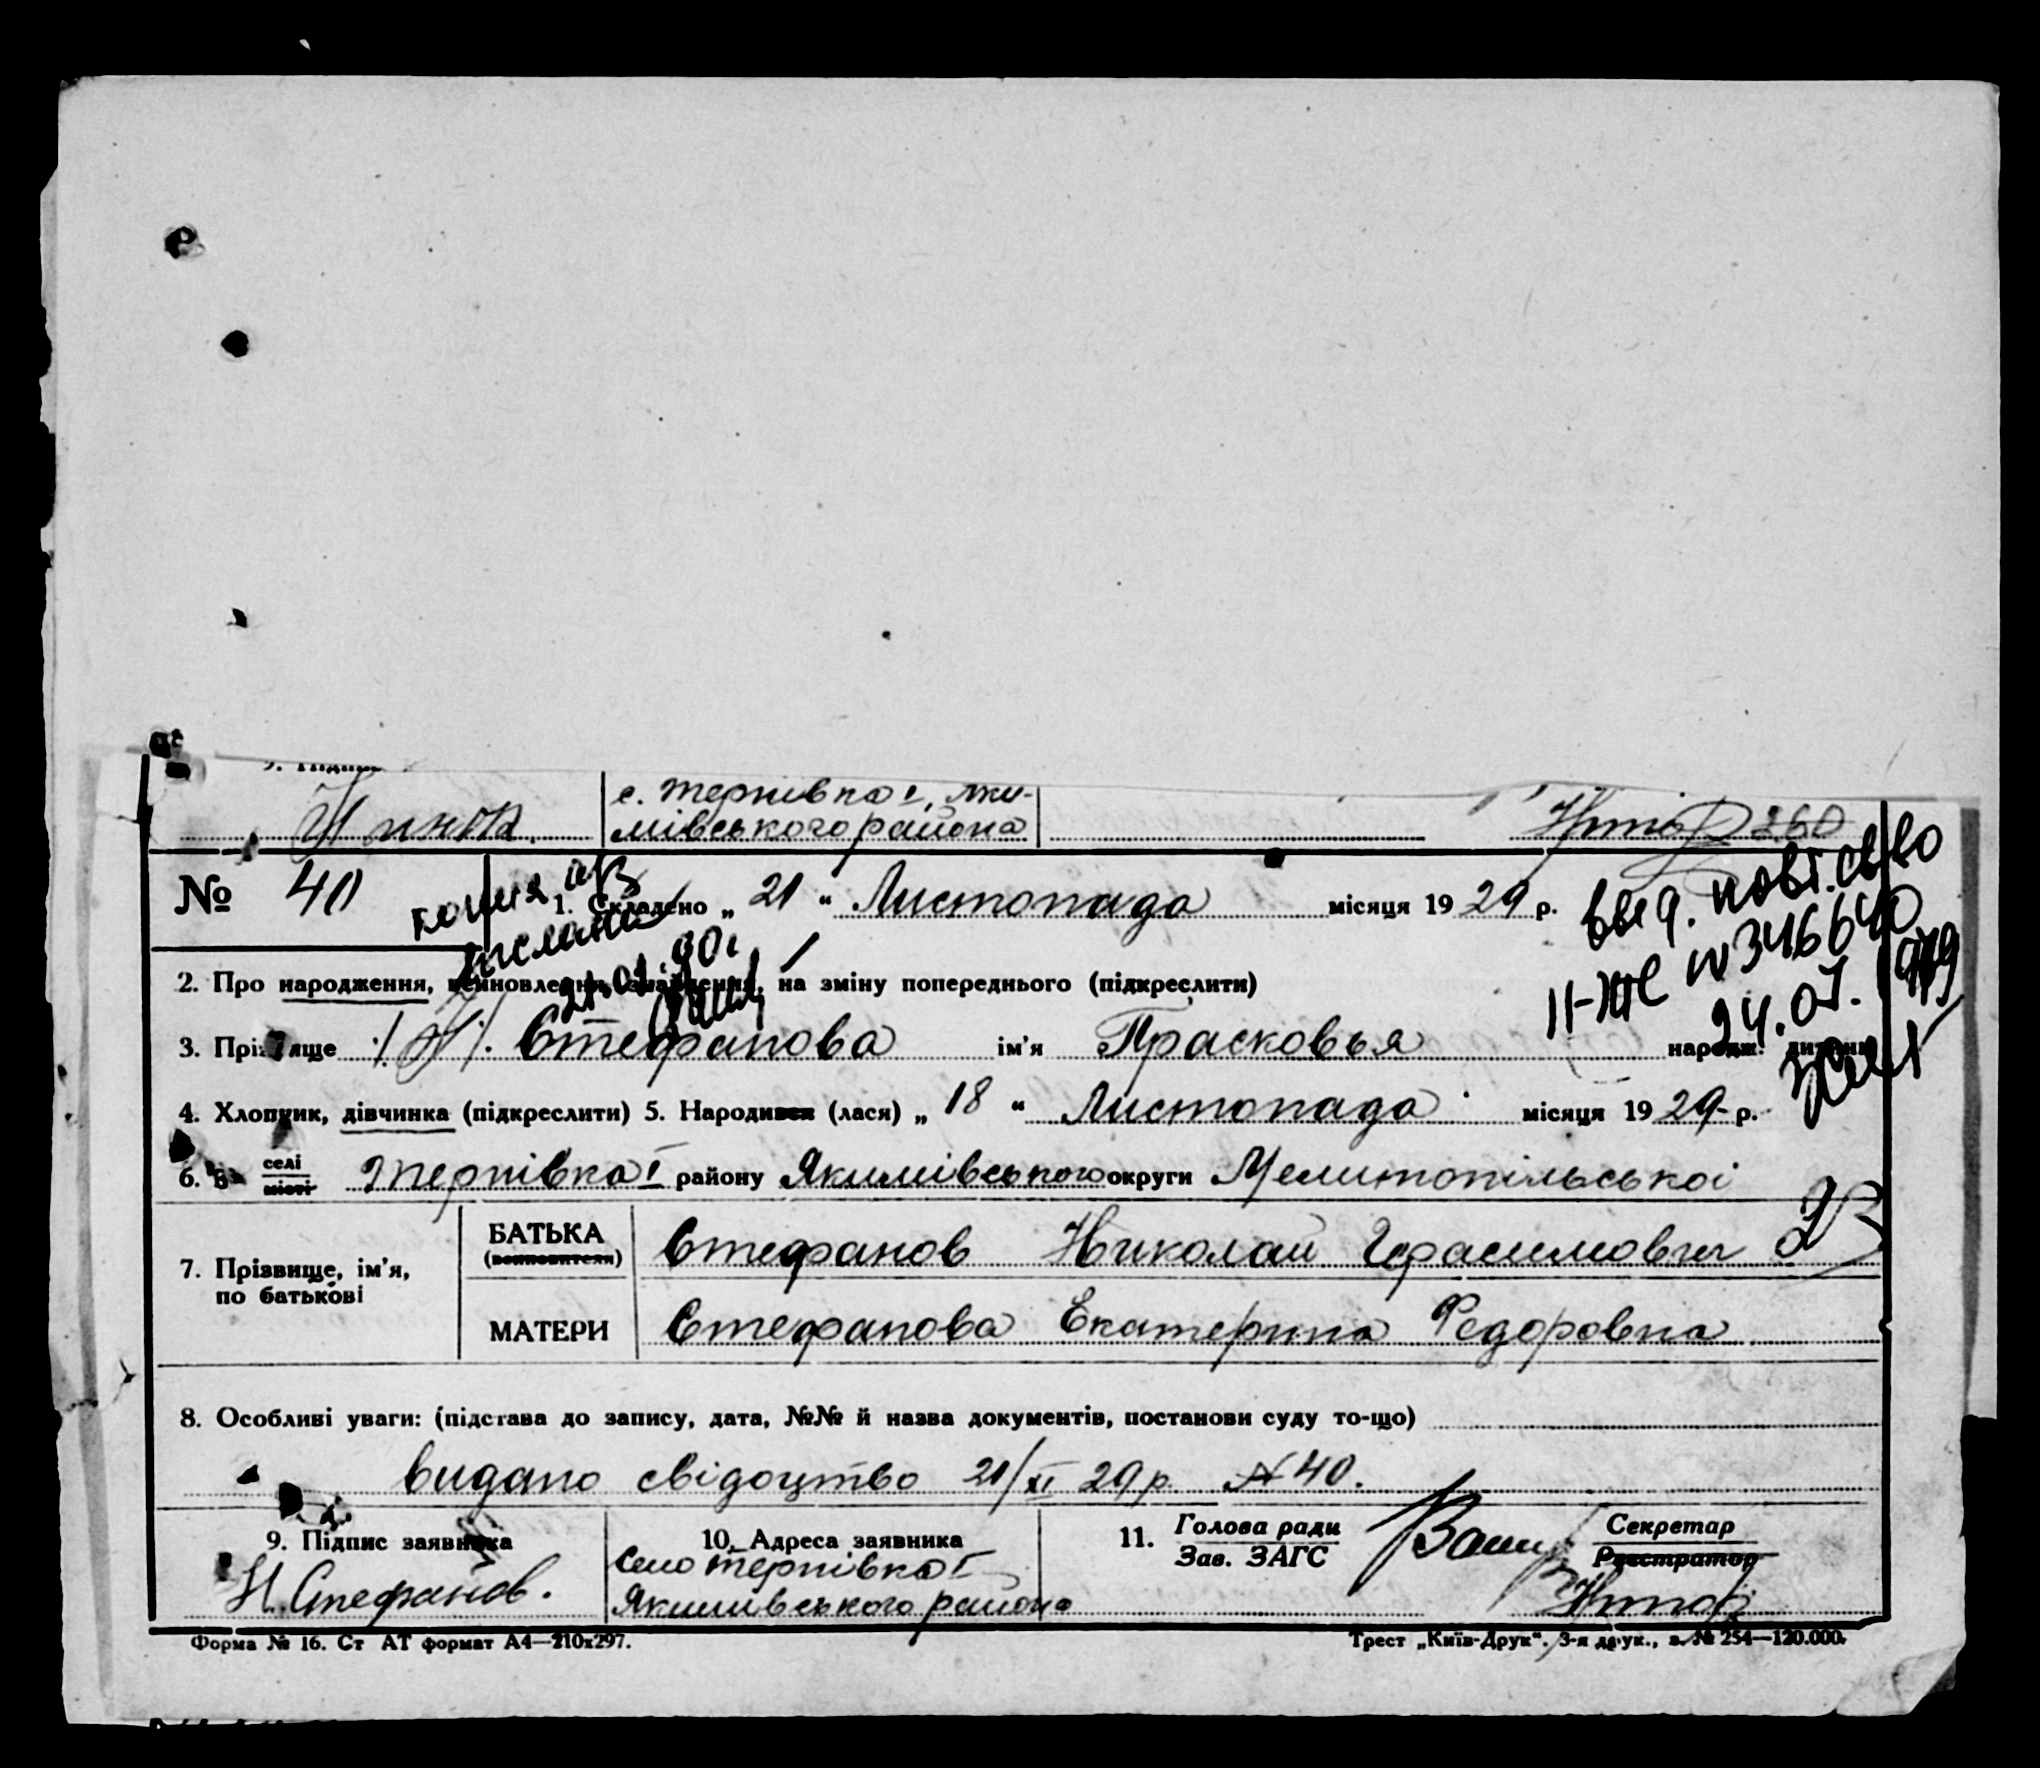 с. Тернівка I, Яки-
мівського района
260
№ 40
копия
1. Складено „ 21 “ Листопада місяця 19 29 р.
выд. повт. св-во
II-ЖС № 346640
24.07. 1979
2. Про народження, всиновлення, на зміну попереднього (підкреслити)
3. Прізвище Стефанова ім'я Прасковья народж. дитини
4. Хлопчик, дівчинка (підкреслити) 5. Народився (лася) „ 18 “ Листопада місяця 19 29 р.
6. В селі місті Тернівка I району Якимівського округи Мелитопільськоі
7. Прізвище, ім'я, по батькові
БАТЬКА (всиновителя) Стефанов Николай Герасимович
МАТЕРИ Стефанова Екатерина Федоровна
8. Особливі уваги: (підстава до запису, дата, №№ й назва документів, постанови суду то-що)
видано свідоцтво 21/XI 29 р. № 40.
9. Підпис заявника
Н. Стефанов.
10. Адреса заявника
село Тернівка I
Якимівського района
11. Голова ради
Зав. ЗАГС
Секретар
Реєстратор
Форма № 16. Ст АТ формат А4—210х297.
Трест „Київ-Друк“. 3-я друк., з. № 254—120.000.